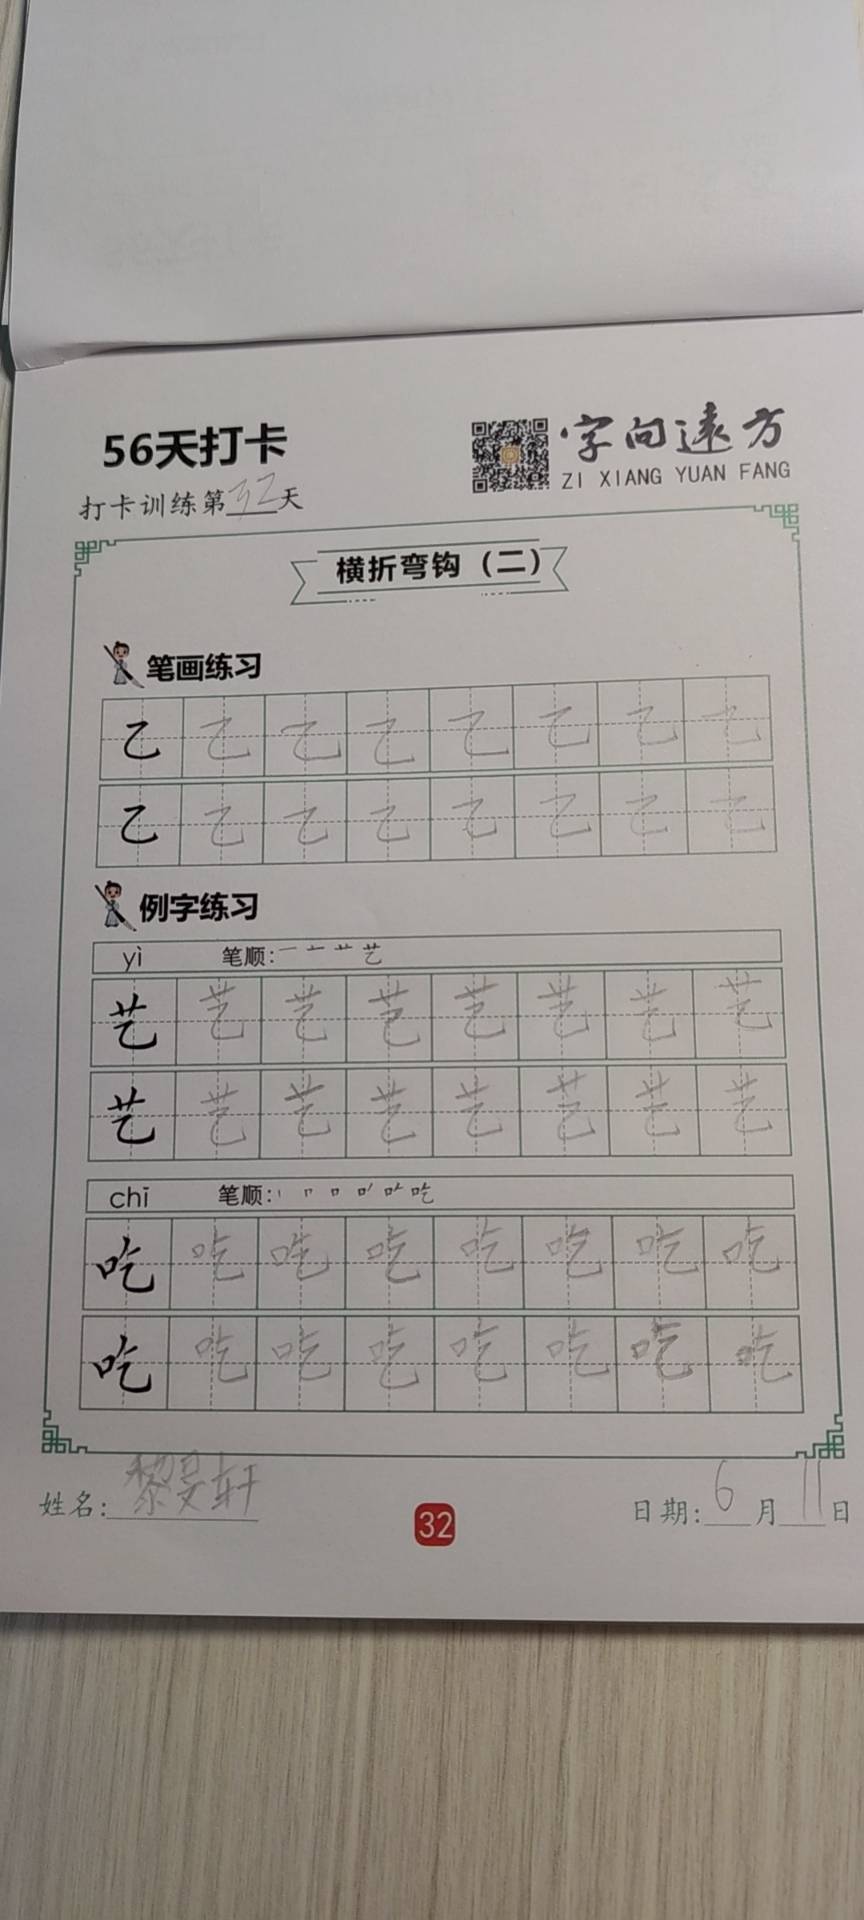 56天打卡
字向远方
ZI XIANG YUAN FANG
打卡训练第32天
横折弯钩（二）
笔画练习
乙乙乙乙乙乙乙乙
乙乙乙乙乙乙乙乙
例字练习
yì 笔顺:
艺艺艺艺艺艺艺艺
艺艺艺艺艺艺艺艺
chī 笔顺:
吃吃吃吃吃吃吃吃
吃吃吃吃吃吃吃吃
姓名:黎旻轩
32
日期:6月11日